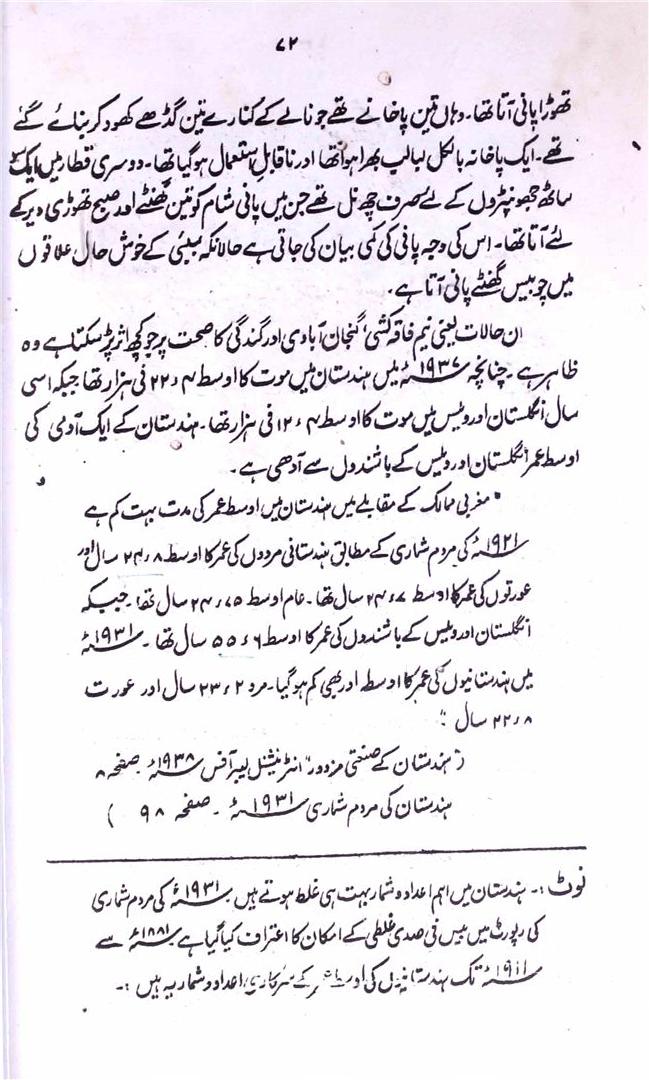 ۷۲
تھوڑا پانی آتا تھا۔ وہاں تین پاخانے تھے جو نالے کے کنارے تین گڈھے کھود کر بنائے گئے
تھے۔ ایک پاخانہ بالکل لبالب بھرا ہوا تھا اور ناقابل استعمال ہو گیا تھا۔ دوسری قطار میں ایک سو
ساٹھ جھونپڑوں کے لئے صرف چھ نل تھے جن میں پانی شام کو تین گھنٹے اور صبح تھوڑی دیر کے
لئے آتا تھا۔ اس کی وجہ پانی کی کمی بیان کی جاتی ہے حالانکہ بمبئی کے خوش حال علاقوں
میں چوبیس گھنٹے پانی آتا ہے۔
ان حالات یعنی نیم فاقہ کشی، گنجان آبادی اور گندگی کا صحت پر جو کچھ اثر پڑ سکتا ہے وہ
ظاہر ہے۔ چنانچہ ۱۹۳۷ء میں ہندستان میں موت کا اوسط ۲۲٫۴ فی ہزار تھا جبکہ اسی
سال انگلستان اور ویلس میں موت کا اوسط ۱۲٫۴ فی ہزار تھا۔ ہندستان کے ایک آدمی کی
اوسط عمر انگلستان اور ویلس کے باشندوں سے آدھی ہے۔
"مغربی ممالک کے مقابلے میں ہندستان میں اوسط عمر کی مدت بہت کم ہے
۱۹۲۱ء کی مردم شماری کے مطابق ہندستانی مردوں کی عمر کا اوسط ۲۴٫۸ سال اور
عورتوں کی عمر کا اوسط ۲۴٫۷ سال تھا۔ عام اوسط ۲۴٫۷۵ سال تھا۔ جبکہ
انگلستان اور ویلس کے باشندوں کی عمر کا اوسط ۵۵٫۶ سال تھا۔ ۱۹۳۱ء
میں ہندستانیوں کی عمر کا اوسط اور بھی کم ہو گیا۔ مرد ۲۳٫۲ سال اور عورت
۲۲٫۸ سال"
("ہندستان کے صنعتی مزدور" انٹرنیشنل لیبر آفس ۱۹۳۸ء۔ صفحہ ۸
ہندستان کی مردم شماری ۱۹۳۱ء۔ صفحہ ۹۸ )
نوٹ :۔ ہندستان میں اہم اعداد و شمار بہت ہی غلط ہوتے ہیں۔ ۱۹۳۱ء کی مردم شماری
کی رپورٹ میں بیس فی صدی غلطی کے امکان کا اعتراف کیا گیا ہے۔ ۱۸۸۱ء سے
۱۹۱۱ء تک ہندستانیوں کی اوسط عمر کے سرکاری اعداد و شمار یہ ہیں :۔